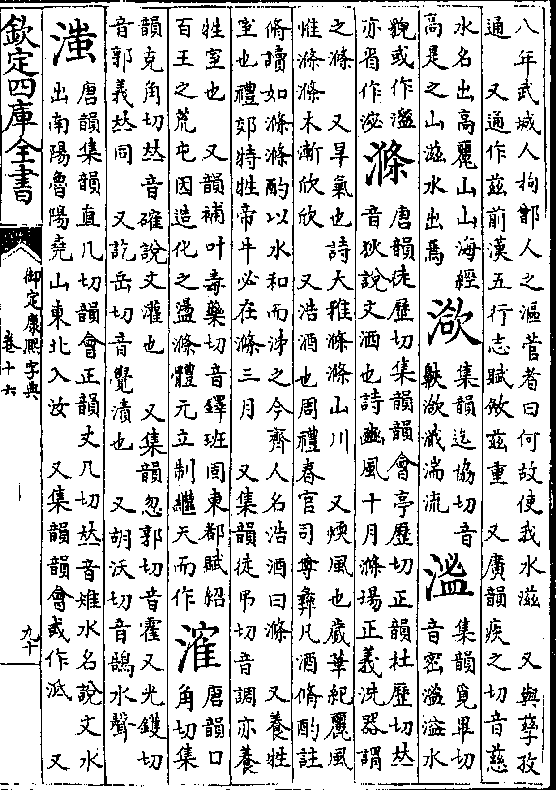 八年武城人拘鄫人之漚菅者曰何故使我水滋　又與孳孜
通　又通作茲前漢五行志賦斂茲重　又廣韻疾之切音慈
水名出高麗山山海經
高是之山滋水出焉
潝
集韻迄協切音
歙潝瀐湍流
㴵
集韻覓畢切
音密㴵溢水
貌或作㴵
亦省作泌
滌
唐韻徒歷切集韻韻會亭歷切正韻杜歷切𠀤
音狄說文洒也詩豳風十月滌場正義洗器謂
之滌　又旱氣也詩大雅滌滌山川　又煖風也歲華紀麗風
惟滌滌木漸欣欣　又浩酒也周禮春官司尊彝凡酒脩酌註
脩讀如滌滌酌以水和而泲之今齊人名浩酒曰滌　又養牲
室也禮郊特牲帝牛必在滌三月　又集韻徒弔切音調亦養
牲室也　又韻補叶壽藥切音鐸班固東都賦紹
百王之荒屯因造化之盪滌體元立制繼天而作
㴶
唐韻口
角切集
韻克角切𠀤音確說文灌也　又集韻忽郭切音霍又光鑊切
音郭義𠀤同　又訖岳切音覺漬也　又胡沃切音鵠水聲
滍
唐韻集韻直几切韻會正韻丈几切𠀤音雉水名說文水
出南陽魯陽堯山東北入汝　又集韻韻會或作泜　又
欽定四庫全書
御定康熙字典
卷十六
九十